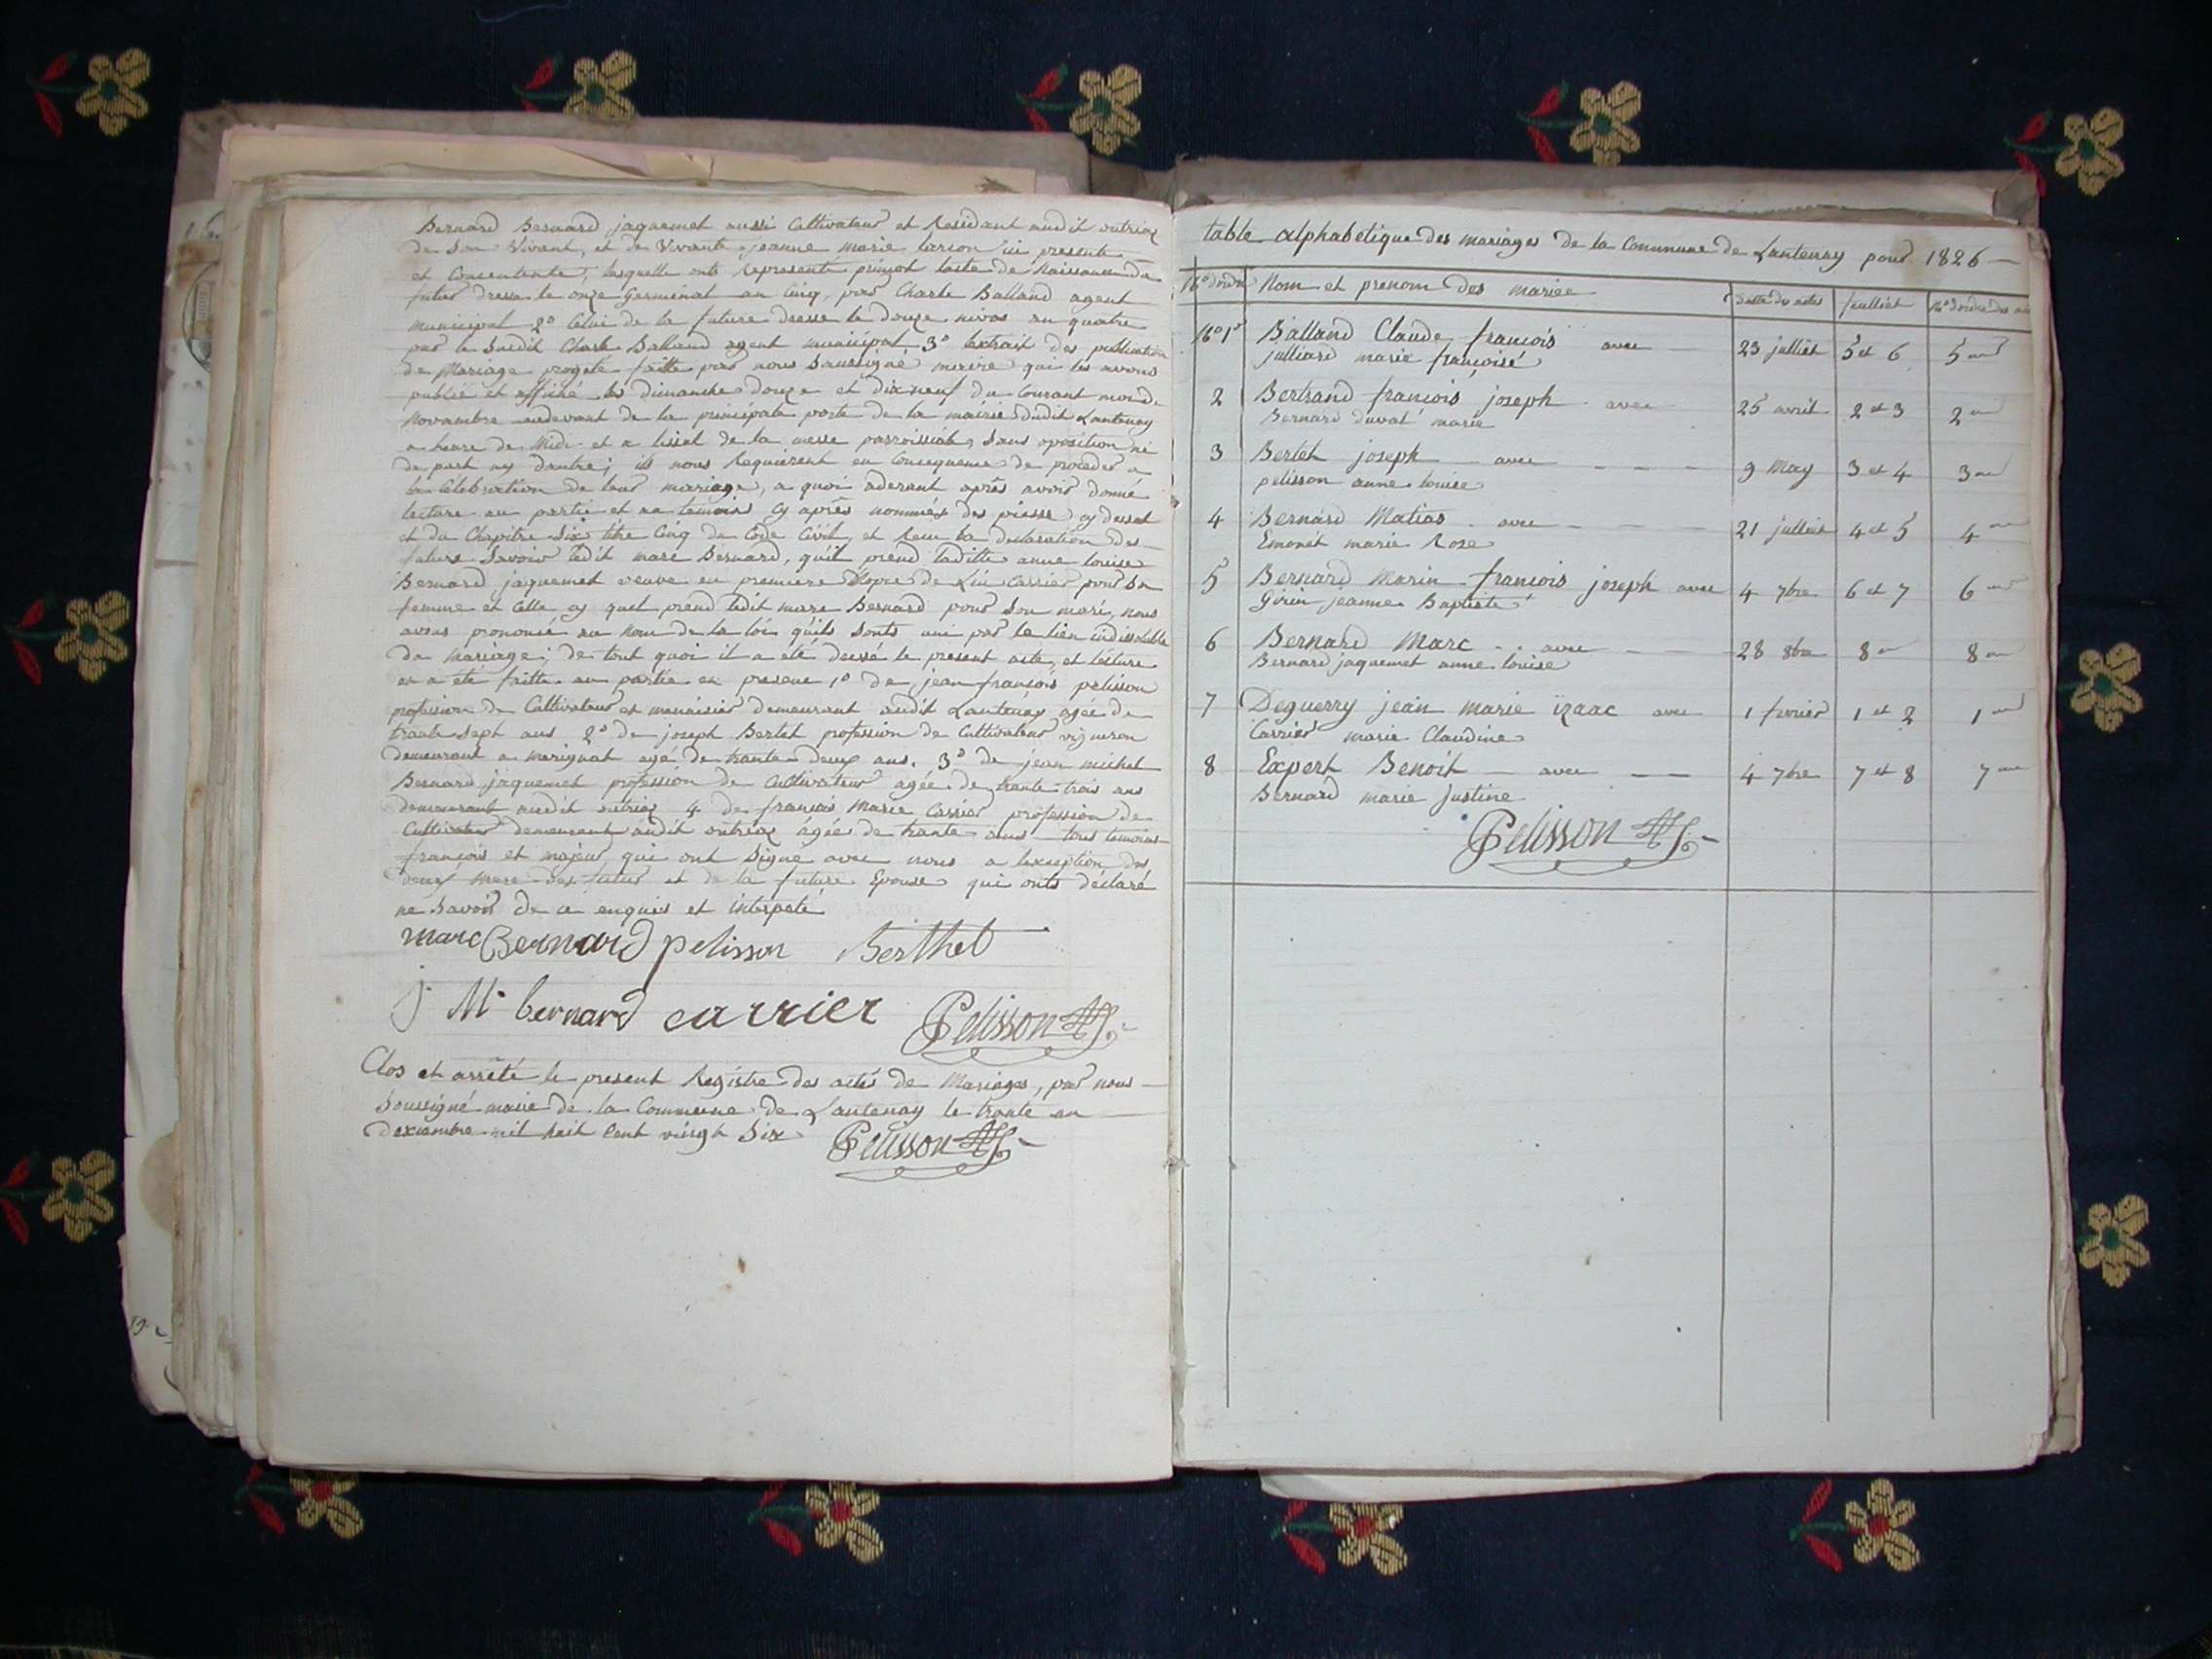 Bernard Bernard jaquemet aussi Cultivateur et Residant audit outriaz
de Son Vivant, et de Vivante jeanne marie larcon ici presente
et Concentente, lesquelle onts Representé primot lacte de Naissance du
futur dressé le onze Germinal an Cinq, par Charle Balland agent
municipal 2º Celui de la future dressé le douze nivos an quatre
par le Susdit Charle Balland agent municipal 3º lextrait des publication
de Mariage progeté faitte par nous Soussigné maire qui les avons
publié et affiché les dimanche douze et dix neuf du Courant mois de
Novambre audevant de la principale porte de la mairie dudit Lantenay
a heure de Midi et a lissue de la messe parroissiale, Sans oposition ni
de part ny dautre; ils nous Requierent en Consequence de proceder a
la Celebration de leur mariage, a quoi aderant après avoir donné
lecture au partie et au temoins cy après nommés des piesse cy dessus
et du Chapitre Six titre Cinq du Code Civil, et Recu la declaration des
futurs Savoir ledit marc Bernard, qu'il prend laditte anne louise
Bernard jaquemet veuve en premiere Nopce de Carrier pour Sa
femme et Celle cy quel prend ledit marc Bernard pour Son mari, nous
avons prononcé au Nom de la loi quils Sonts uni par le lien indissoluble
du Mariage; de tout quoi il a été dressé le present acte, et lecture
en a été faitte au partie en presence 1º de jean françois pelisson
profession de Cultivateur et menuisier demeurant audit Lantenay agée de
trante Sept ans 2º de joseph Bertet profession de Cultivateur vigneron
demeurant a merignat agé de trante deux ans. 3º de jean michel
Bernard jaquemet profession de Cultivateur agée de trante trois ans
demeurant audit outriaz 4 de françois Marie Carrier profession de
Cultivateur demeurant audit outriaz agée de trante ans tous temoins
françois et majeur qui ont Signe avec nous a lexception des
deux mere des futur et de la future Epouse qui onts déclaré
ne Savoir de ce enquis et interpelé
marc Bernard pelisson Berthet
j Ml bernard carrier Pelisson
Clos et arrêté le present Registre des actes de Mariages, par nous
Soussigné maire de la Commune de Lantenay le trante un
dexcembre mil huit Cent vingt Six Pelisson
table alphabetique des mariages de la Commune de Lantenay pour 1826
Nº dordre Nom et prenom des mariée datte des actes feulliet Nº dordre des
Nº 1er Balland Claude françois avec 23 julliet 5 et 6 5
julliard marie françoise
2 Bertrand francois joseph avec 25 avril 2 et 3 2
Bernard duval marie
3 Bertet joseph avec 9 May 3 et 4 3
pelisson anne louise
4 Bernard Matias avec 21 julliet 4 et 5 4
Emonet marie Rose
5 Bernard Marin francois joseph avec 4 7bre 6 et 7 6
Girin jeanne Baptiste
6 Bernard Marc avec 28 8 8
Bernard jaquemet anne louise
7 Deguerry jean marie izaac avec 1 fevrier 1 et 2 1
Carrier marie Claudine
8 Expert Benoit avec 4 7bre 7 et 8 7
Bernard marie Justine
Pelisson